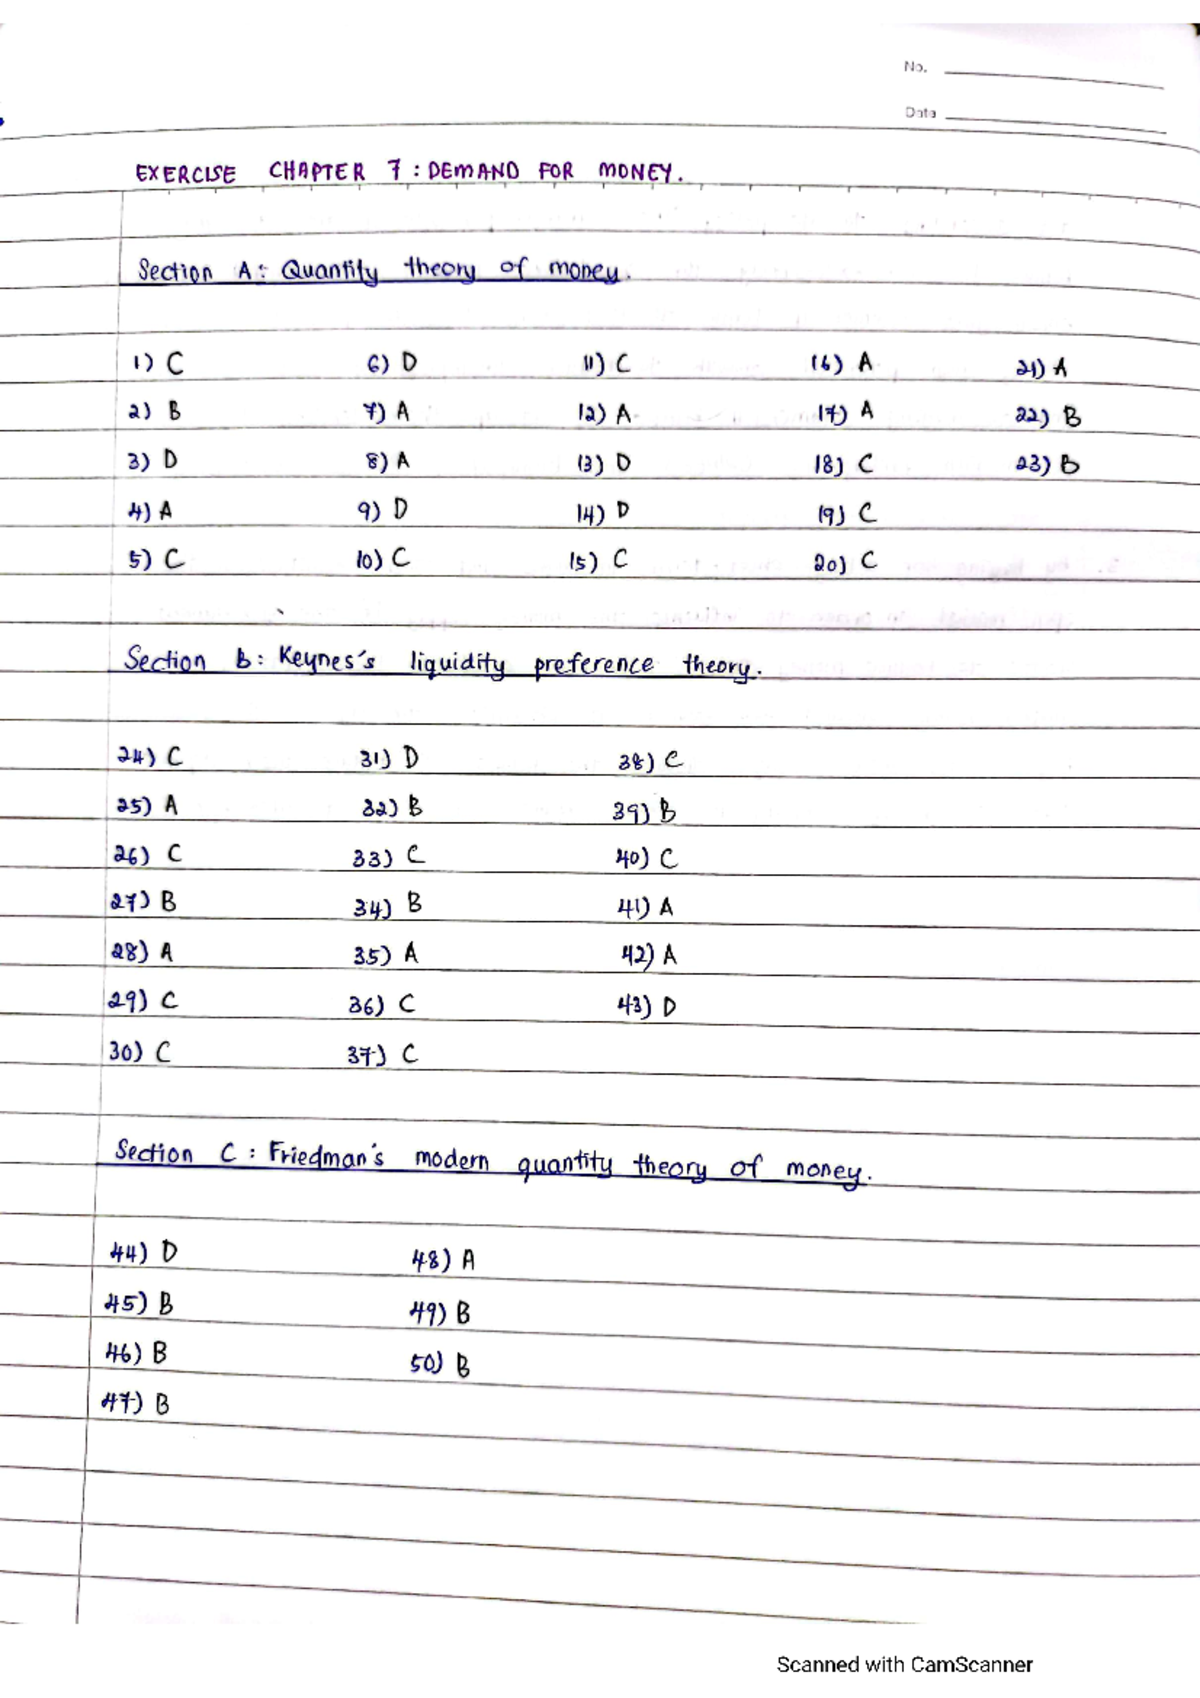 No.
Date
EXERCISE CHAPTER 7 : DEMAND FOR MONEY.
Section A : Quantity theory of money.
1) C 6) D 11) C 16) A 21) A
2) B 7) A 12) A 17) A 22) B
3) D 8) A 13) D 18) C 23) B
4) A 9) D 14) D 19) C
5) C 10) C 15) C 20) C
Section B : Keynes's liquidity preference theory.
24) C 31) D 38) C
25) A 32) B 39) B
26) C 33) C 40) C
27) B 34) B 41) A
28) A 35) A 42) A
29) C 36) C 43) D
30) C 37) C
Section C : Friedman's modern quantity theory of money.
44) D 48) A
45) B 49) B
46) B 50) B
47) B
Scanned with CamScanner